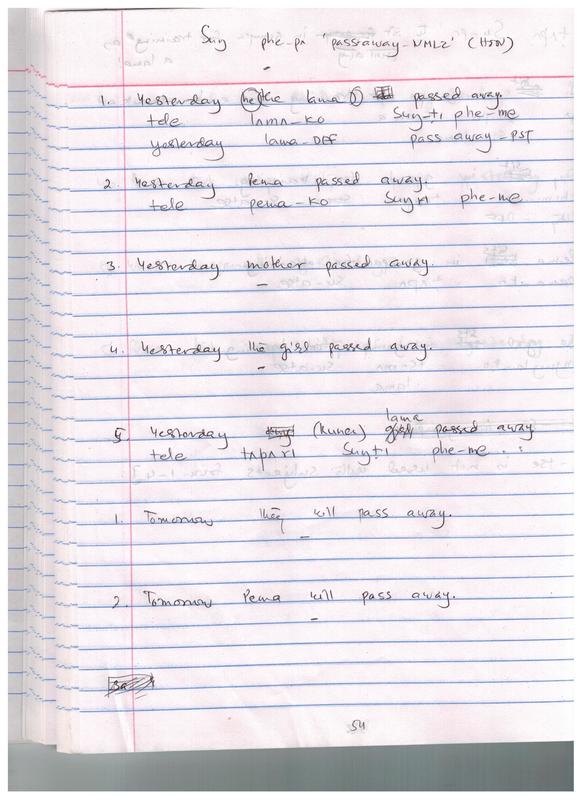 Suŋ phe-pʌ 'passaway-NMLZ' (HON)
1. Yesterday (he) the lama passed away.
tele lʌmʌ-ko Suŋ-tɨ phe-me
yesterday lama-DEF pass away-PST
2. Yesterday Pema passed away.
tele pema-ko phe-me
3. Yesterday mother passed away.
4. Yesterday the girl passed away.
5. Yesterday (Kunex) lama passed away
tele phe-me
1. Tomorrow they will pass away.
2. Tomorrow Pema will pass away.
54